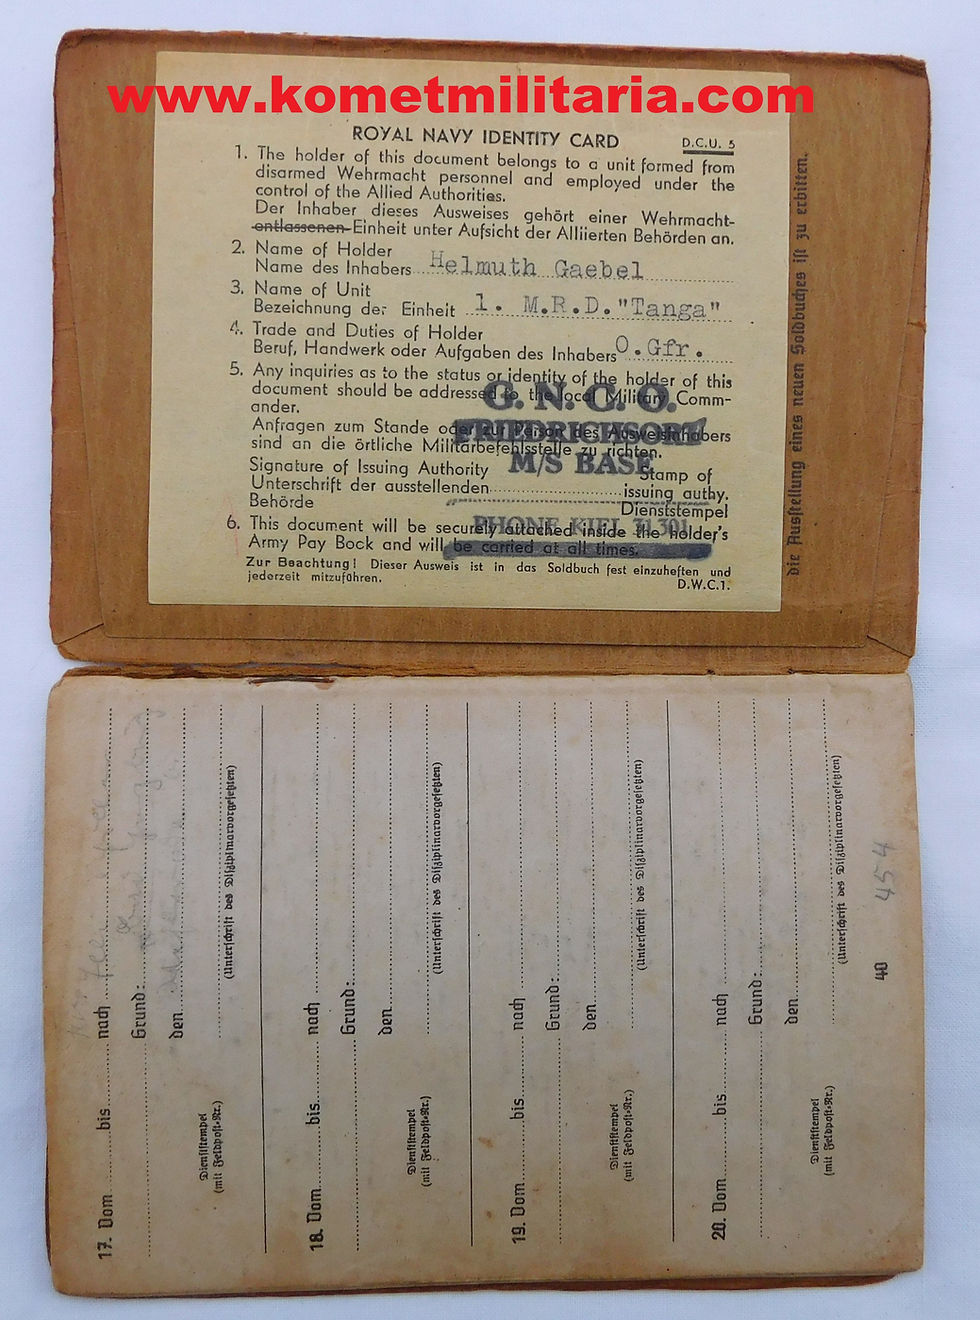 www.kometmilitaria.com
ROYAL NAVY IDENTITY CARD
D.C.U. 5
1. The holder of this document belongs to a unit formed from
disarmed Wehrmacht personnel and employed under the
control of the Allied Authorities.
Der Inhaber dieses Ausweises gehört einer Wehrmacht-
entlassenen-Einheit unter Aufsicht der Alliierten Behörden an.
2. Name of Holder
Name des Inhabers Helmuth Gaebel
3. Name of Unit
Bezeichnung der Einheit 1. M.R.D."Tanga"
4. Trade and Duties of Holder
Beruf, Handwerk oder Aufgaben des Inhabers O.Gfr.
5. Any inquiries as to the status or identity of the holder of this
document should be addressed to the local Military Comm-
ander.
Anfragen zum Stande oder zur Person des Ausweisinhabers
sind an die örtliche Militärbefehlsstelle zu richten.
Signature of Issuing Authority
Stamp of
Unterschrift der ausstellenden
issuing authy.
Behörde
Dienststempel
G. N. C. O.
FRIEDRICHSORT
M/S BASE
PHONE KIEL 31301
6. This document will be securely attached inside the holder's
Army Pay Bock and will be carried at all times.
Zur Beachtung! Dieser Ausweis ist in das Soldbuch fest einzuheften und
jederzeit mitzuführen.
D.W.C.1.
die Ausstellung eines neuen Soldbuches ist zu erbitten.
17. Vom bis nach
Grund:
den
(Unterschrift des Disziplinarvorgesetzten)
Dienststempel
(mit Feldpost-Nr.)
18. Vom bis nach
Grund:
den
(Unterschrift des Disziplinarvorgesetzten)
Dienststempel
(mit Feldpost-Nr.)
19. Vom bis nach
Grund:
den
(Unterschrift des Disziplinarvorgesetzten)
Dienststempel
(mit Feldpost-Nr.)
20. Vom bis nach
Grund:
den
(Unterschrift des Disziplinarvorgesetzten)
Dienststempel
(mit Feldpost-Nr.)
40
454